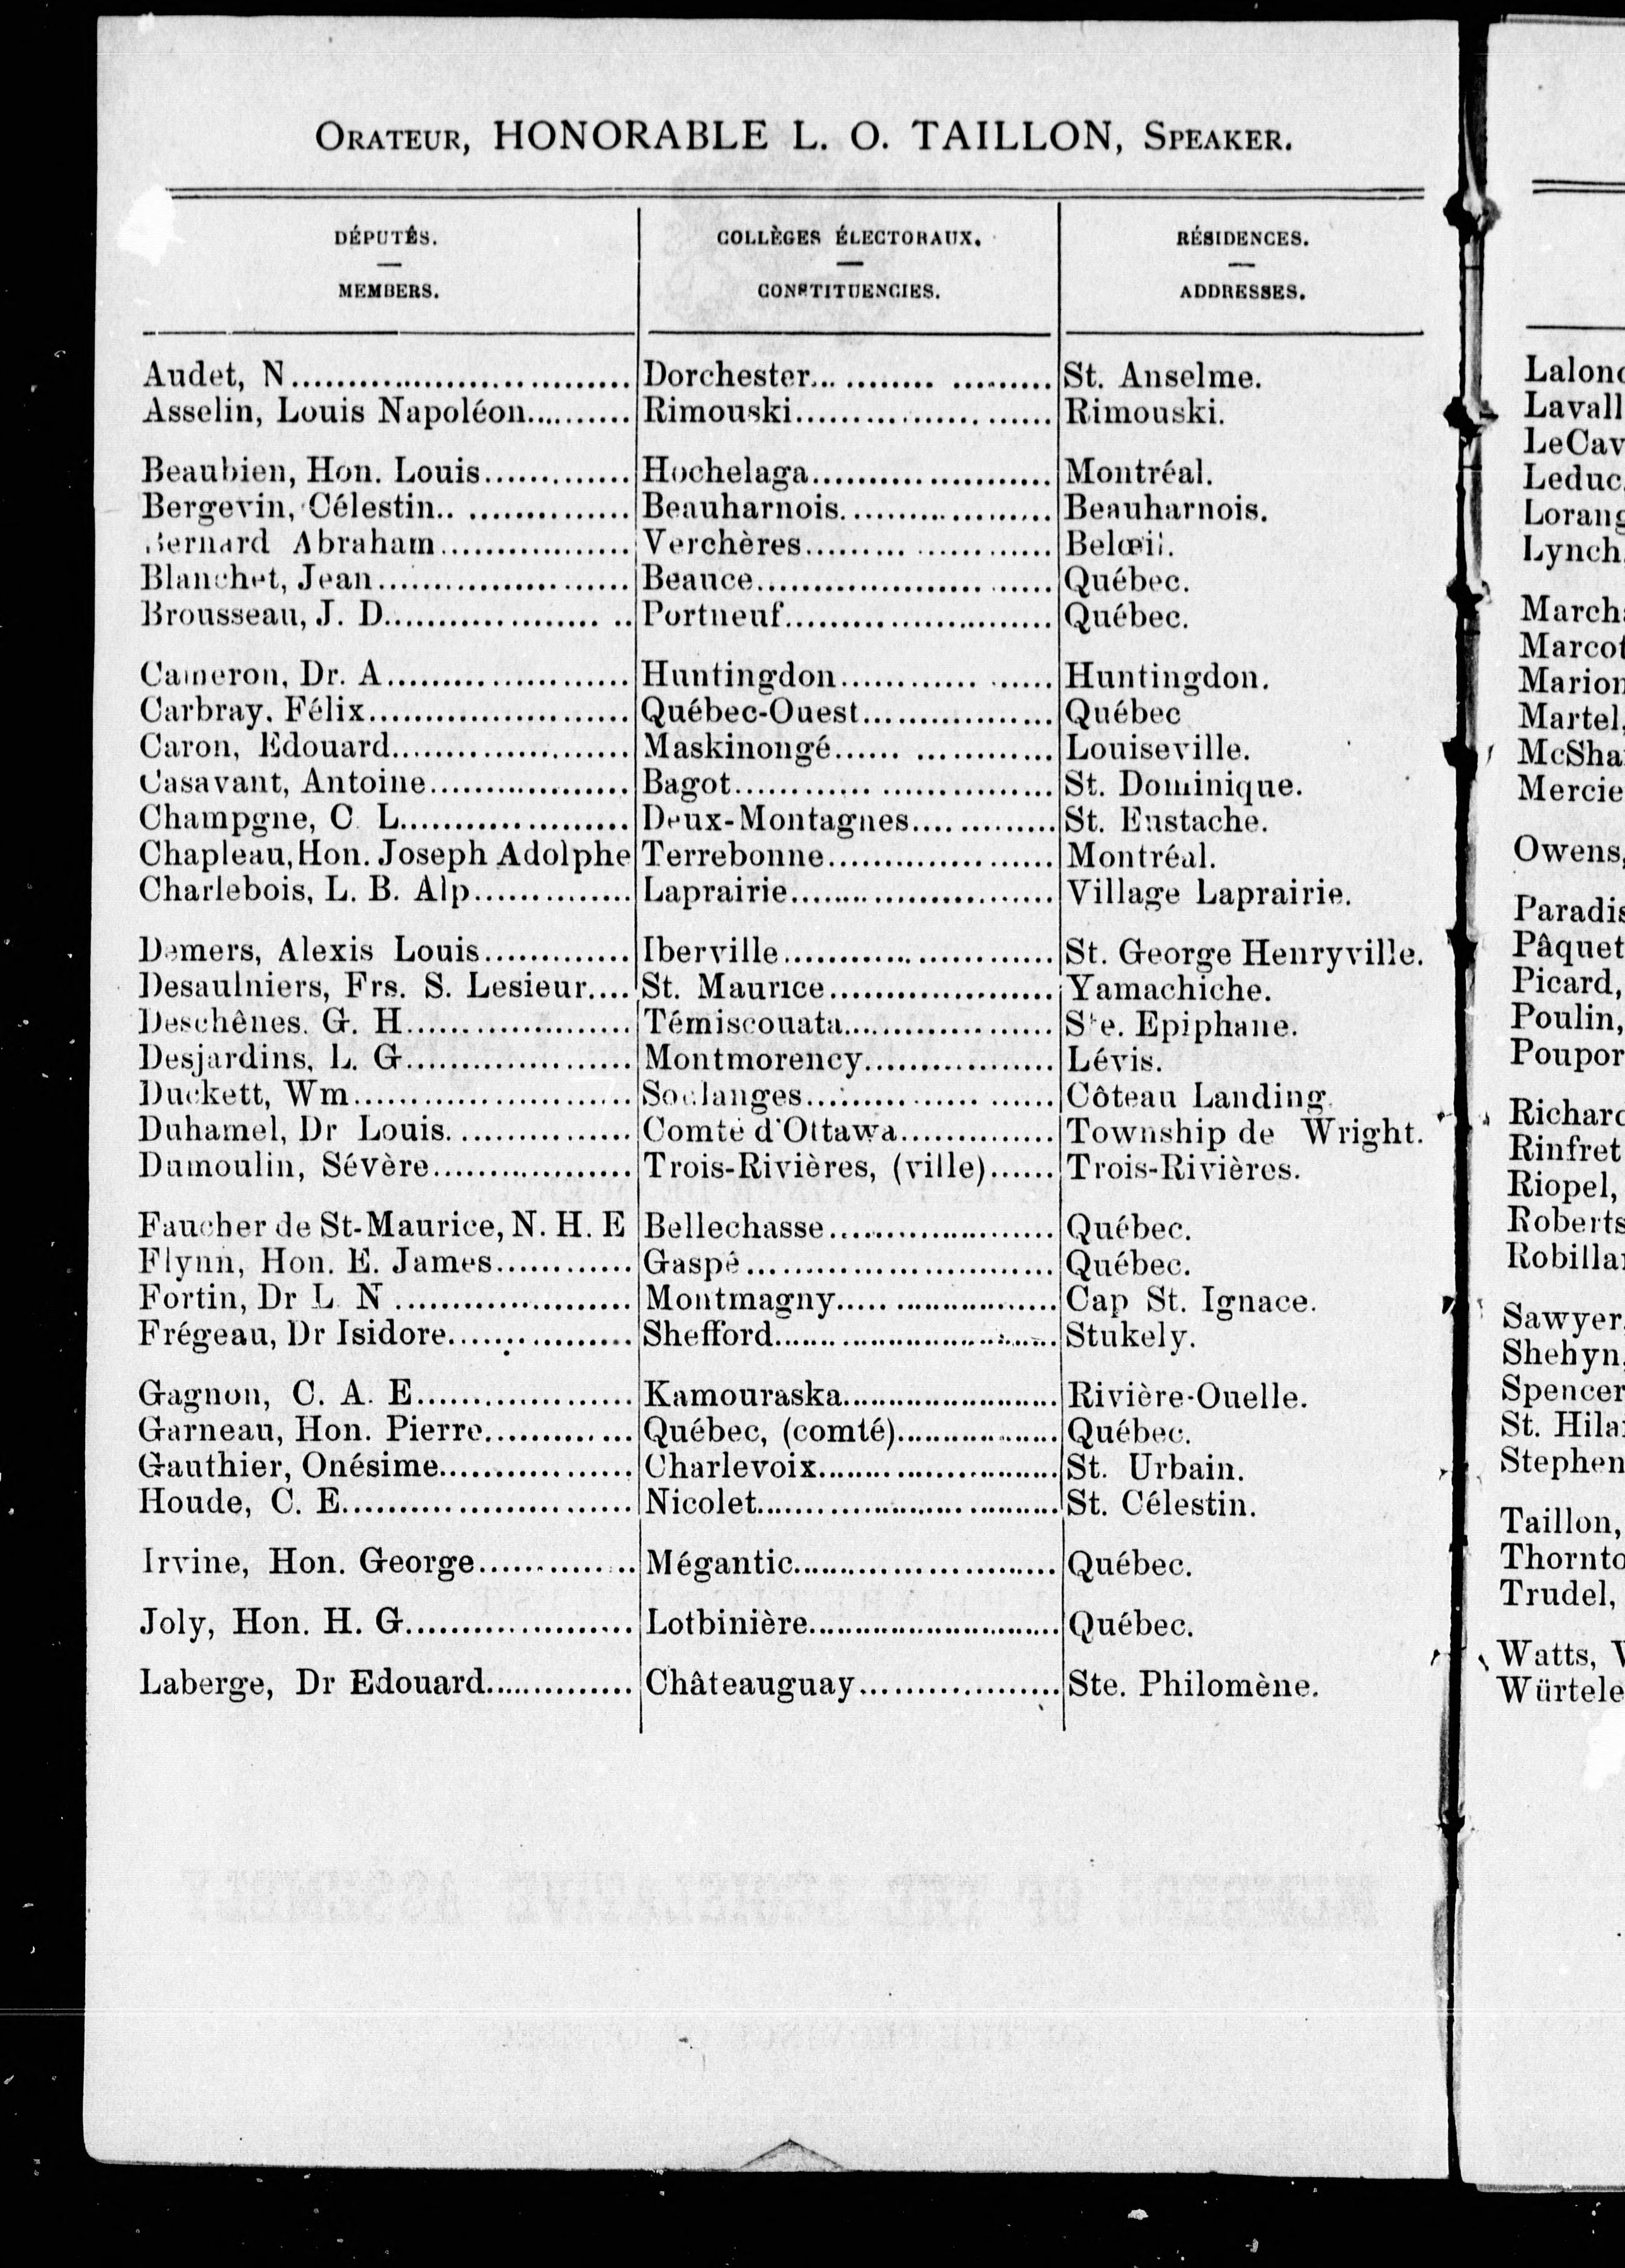 ORATEUR, HONORABLE L. O. TAILLON, SPEAKER.
DÉPUTÉS. COLLÈGES ÉLECTORAUX. RÉSIDENCES.
MEMBERS. CONSTITUENCIES. ADDRESSES.
Audet, N.............................. Dorchester... ........ ......... St. Anselme.
Asselin, Louis Napoléon.......... Rimouski....................... Rimouski.
Beaubien, Hon. Louis............. Hochelaga...................... Montréal.
Bergevin, Célestin.. .............. Beauharnois................... Beauharnois.
Bernard Abraham................. Verchères......... ............ Belœil.
Blanchet, Jean...................... Beauce.................... ...... Québec.
Brousseau, J. D................... .. Portneuf........................ Québec.
Cameron, Dr. A...................... Huntingdon............ ...... Huntingdon.
Carbray. Félix........................ Québec-Ouest................. Québec
Caron, Edouard...................... Maskinongé...... ............ Louiseville.
Casavant, Antoine.................. Bagot............ ................ St. Dominique.
Champgne, C. L..................... Deux-Montagnes............. St. Eustache.
Chapleau, Hon. Joseph Adolphe Terrebonne..................... Montréal.
Charlebois, L. B. Alp.............. Laprairie........................ Village Laprairie.
Demers, Alexis Louis............. Iberville......................... St. George Henryville.
Desaulniers, Frs. S. Lesieur.... St. Maurice..................... Yamachiche.
Deschênes. G. H..................... Témiscouata................... Ste. Epiphane.
Desjardins, L. G..................... Montmorency................. Lévis.
Duckett, Wm......................... Soulanges............... ...... Côteau Landing.
Duhamel, Dr Louis................. Comté d'Ottawa.............. Township de Wright.
Dumoulin, Sévère.................. Trois-Rivières, (ville)...... Trois-Rivières.
Faucher de St-Maurice, N. H. E Bellechasse..................... Québec.
Flynn, Hon. E. James............ Gaspé............................ Québec.
Fortin, Dr L. N ..................... Montmagny..... .............. Cap St. Ignace.
Frégeau, Dr Isidore................ Shefford.......................... Stukely.
Gagnon, C. A. E.................... Kamouraska................... Rivière-Ouelle.
Garneau, Hon. Pierre............. Québec, (comté).............. Québec.
Gauthier, Onésime................. Charlevoix...................... St. Urbain.
Houde, C. E.......................... Nicolet........................... St. Célestin.
Irvine, Hon. George.............. Mégantic........................ Québec.
Joly, Hon. H. G..................... Lotbinière....................... Québec.
Laberge, Dr Edouard............. Châteauguay.................. Ste. Philomène.
Leduc,
Lynch,
Martel,
Owens,
Picard,
Poulin,
Rinfret
Riopel,
Sawyer,
Shehyn,
Spencer
Taillon,
Trudel,
Watts,
Würtele